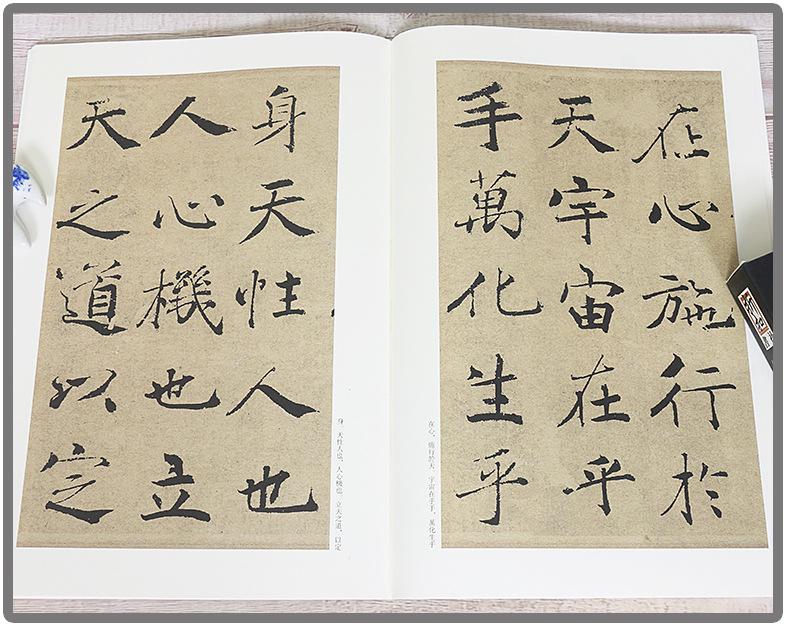 在心施行於
天宇宙在乎
手萬化生乎
在心，施行於天。宇宙在乎手，萬化生乎
身天性人也
人心機也立
天之道以定
身。天性人也，人心機也。立天之道，以定